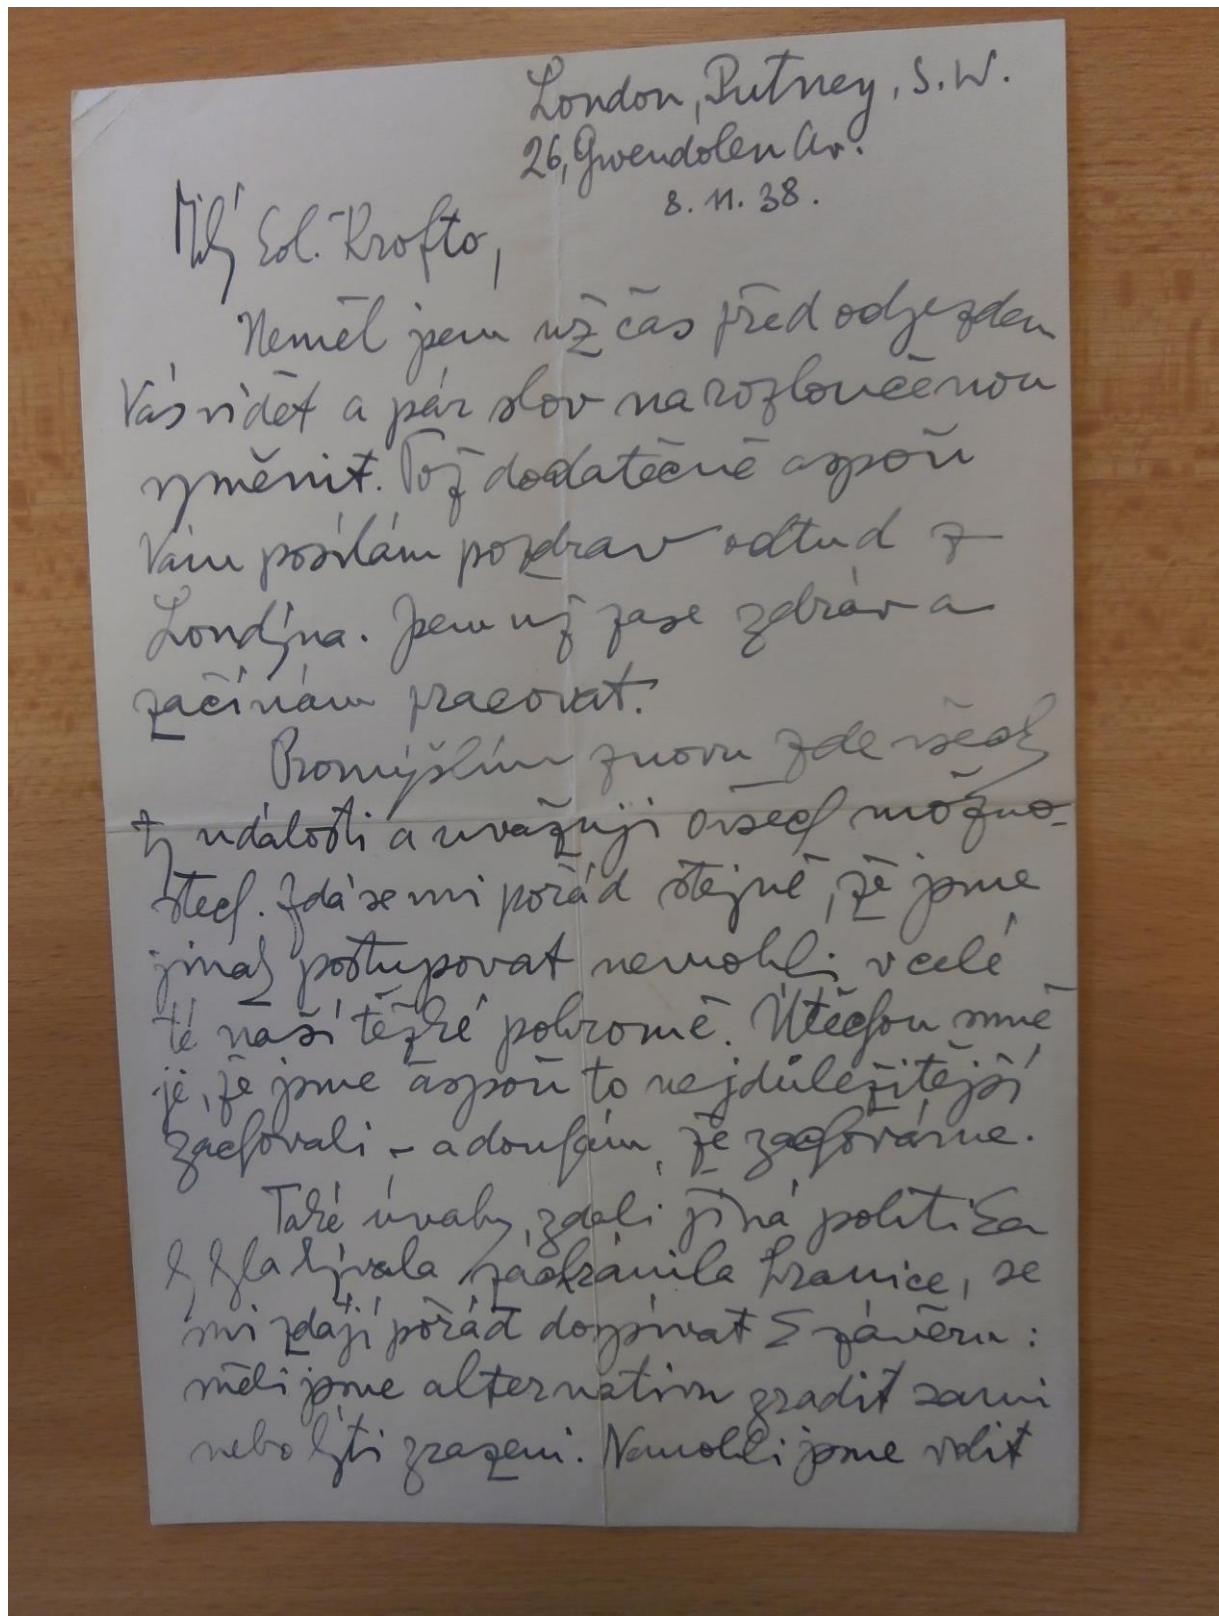 London, Putney, S.W.
26, Gwendolen Av.
8. 11. 38.
Milý kol. Krofto,
Neměl jsem už čas před odjezdem
Vás vidět a pár slov na rozloučenou
vyměnit. Tož dodatečně aspoň
Vám posílám pozdrav odtud z
Londýna. Jsem už zase zdráv a
začínám pracovat.
Promýšlím znovu zde všechny
ty události a uvažuji o všech možno-
stech. Zdá se mi pořád stejně, že jsme
jinak postupovat nemohli v celé
té naší těžké pohromě. Útěchou mně
je, že jsme aspoň to nejdůležitější
zachovali – a doufám, že zachováme.
Také úvahy, zdali jiná politika
by byla bývala zachránila hranice, se
mi zdají pořád dospívat k závěru:
měli jsme alternativu zradit sami
nebo býti zrazeni. Nemohli jsme volit